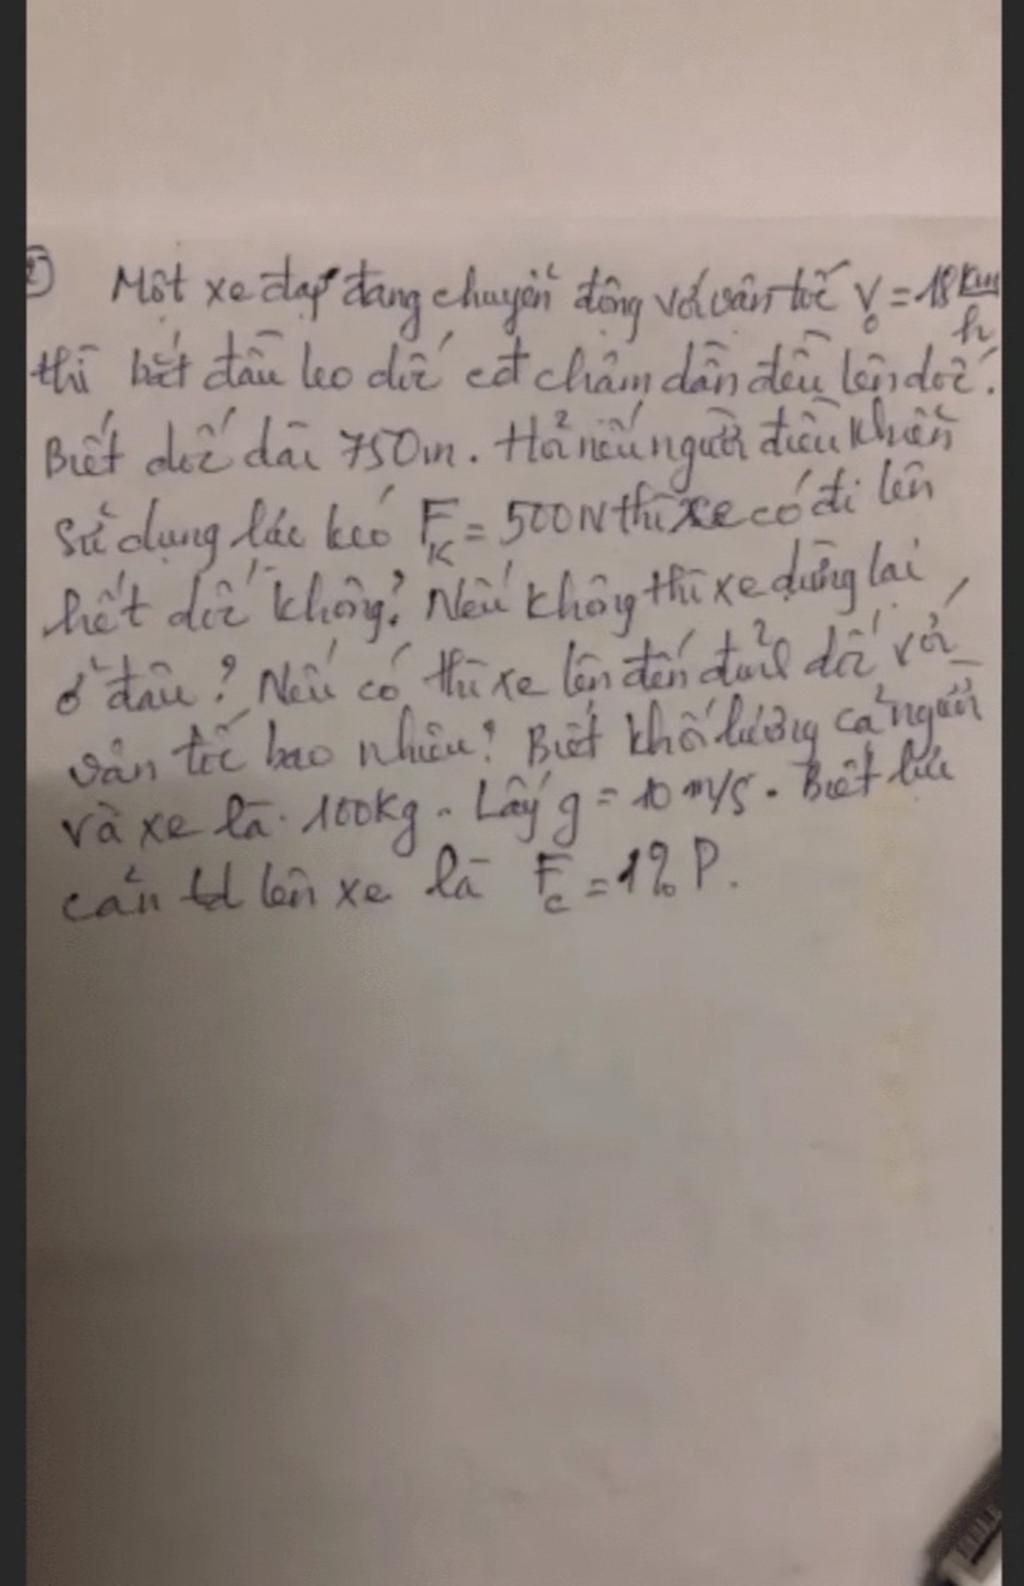 ② Một xe đạp đang chuyển động với vận tốc V₀ = 18 km/h
thì bắt đầu leo dốc cđ chậm dần đều lên dốc.
Biết dốc dài 750m. Hỏi nếu người điều khiển
sử dụng lực kéo F_K = 500N thì xe có đi lên
hết dốc không? Nếu không thì xe dừng lại
ở đâu? Nếu có thì xe lên đến đỉnh dốc với
vận tốc bao nhiêu? Biết khối lượng cả người
và xe là 100kg. Lấy g = 10 m/s. Biết lực
cản td lên xe là F_c = 1% P.